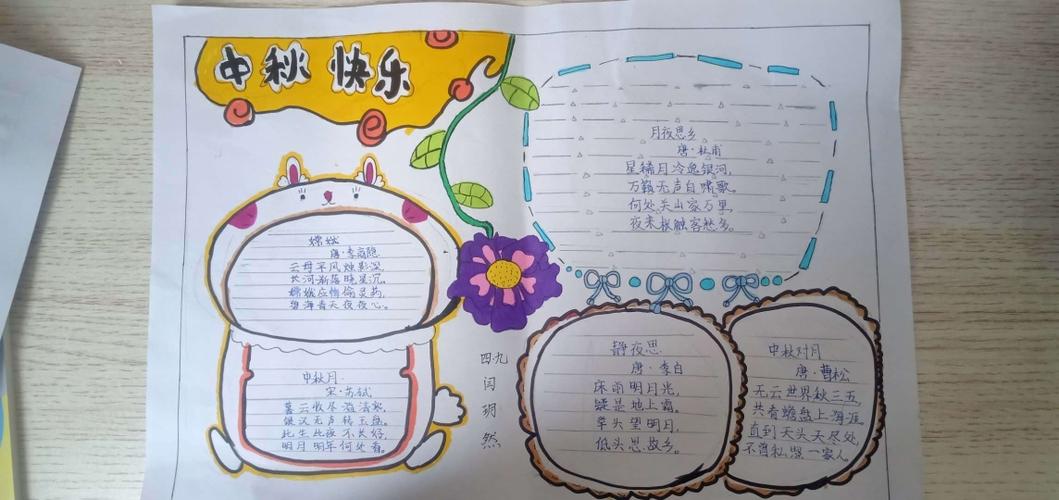 中秋快乐
嫦娥
唐·李商隐
云母平风烛影深,
长河渐落晓星沉,
嫦娥应悔偷灵药,
碧海青天夜夜心。
中秋月
宋·苏轼
暮云收尽溢清寒,
银汉无声转玉盘。
此生此夜不长好,
明月明年何处看。
四九
闫玥然
月夜思乡
唐·杜甫
星稀月冷逸银河,
万籁无声自啸歌。
何处关山家万里,
夜来枨触客愁多。
静夜思
唐·李白
床前明月光,
疑是地上霜。
举头望明月,
低头思故乡。
中秋对月
唐·曹松
无云世界秋三五,
共看蟾盘上海涯。
直到天头天尽处,
不曾私照一家人。